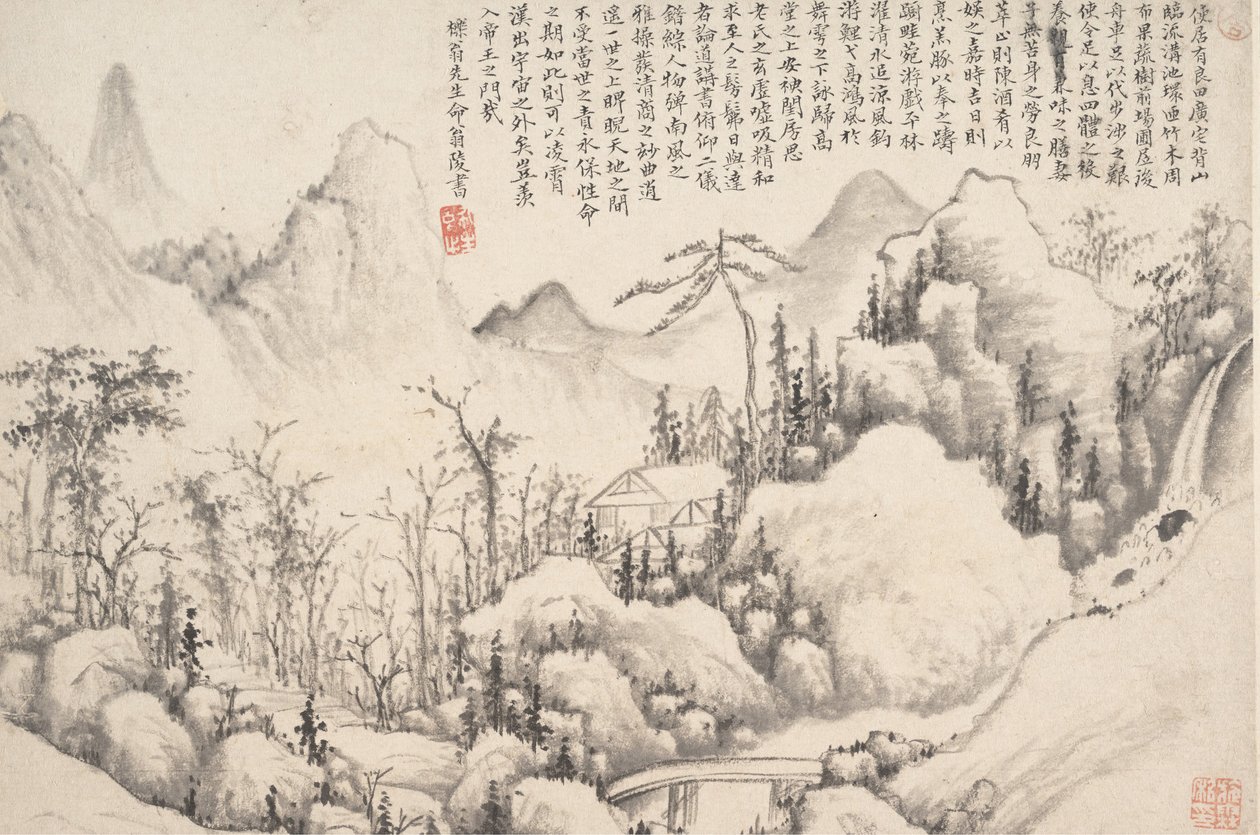 使居有良田廣宅背山
臨流溝池環匝竹木周
布果蔬樹前場圃居後
舟車足以代步涉之艱
使令足以息四體之役
養親有兼味之膳妻
孥無苦身之勞良朋
萃止則陳酒肴以
娛之嘉時吉日則
烹羔豚以奉之躊
躕畦苑游戲平林
濯清水追涼風釣
游鯉弋高鴻風於
舞雩之下詠歸高
堂之上安神閨房思
老氏之玄虛噓吸精和
求至人之髣髴日與達
者論道講書俯仰二儀
錯綜人物彈南風之
雅操發清商之玅曲逍
遙一世之上睥睨天地之間
不受當世之責永保性命
之期如此則可以凌霄
漢出宇宙之外矣豈羨
入帝王之門哉
櫟翁先生命翁陵書